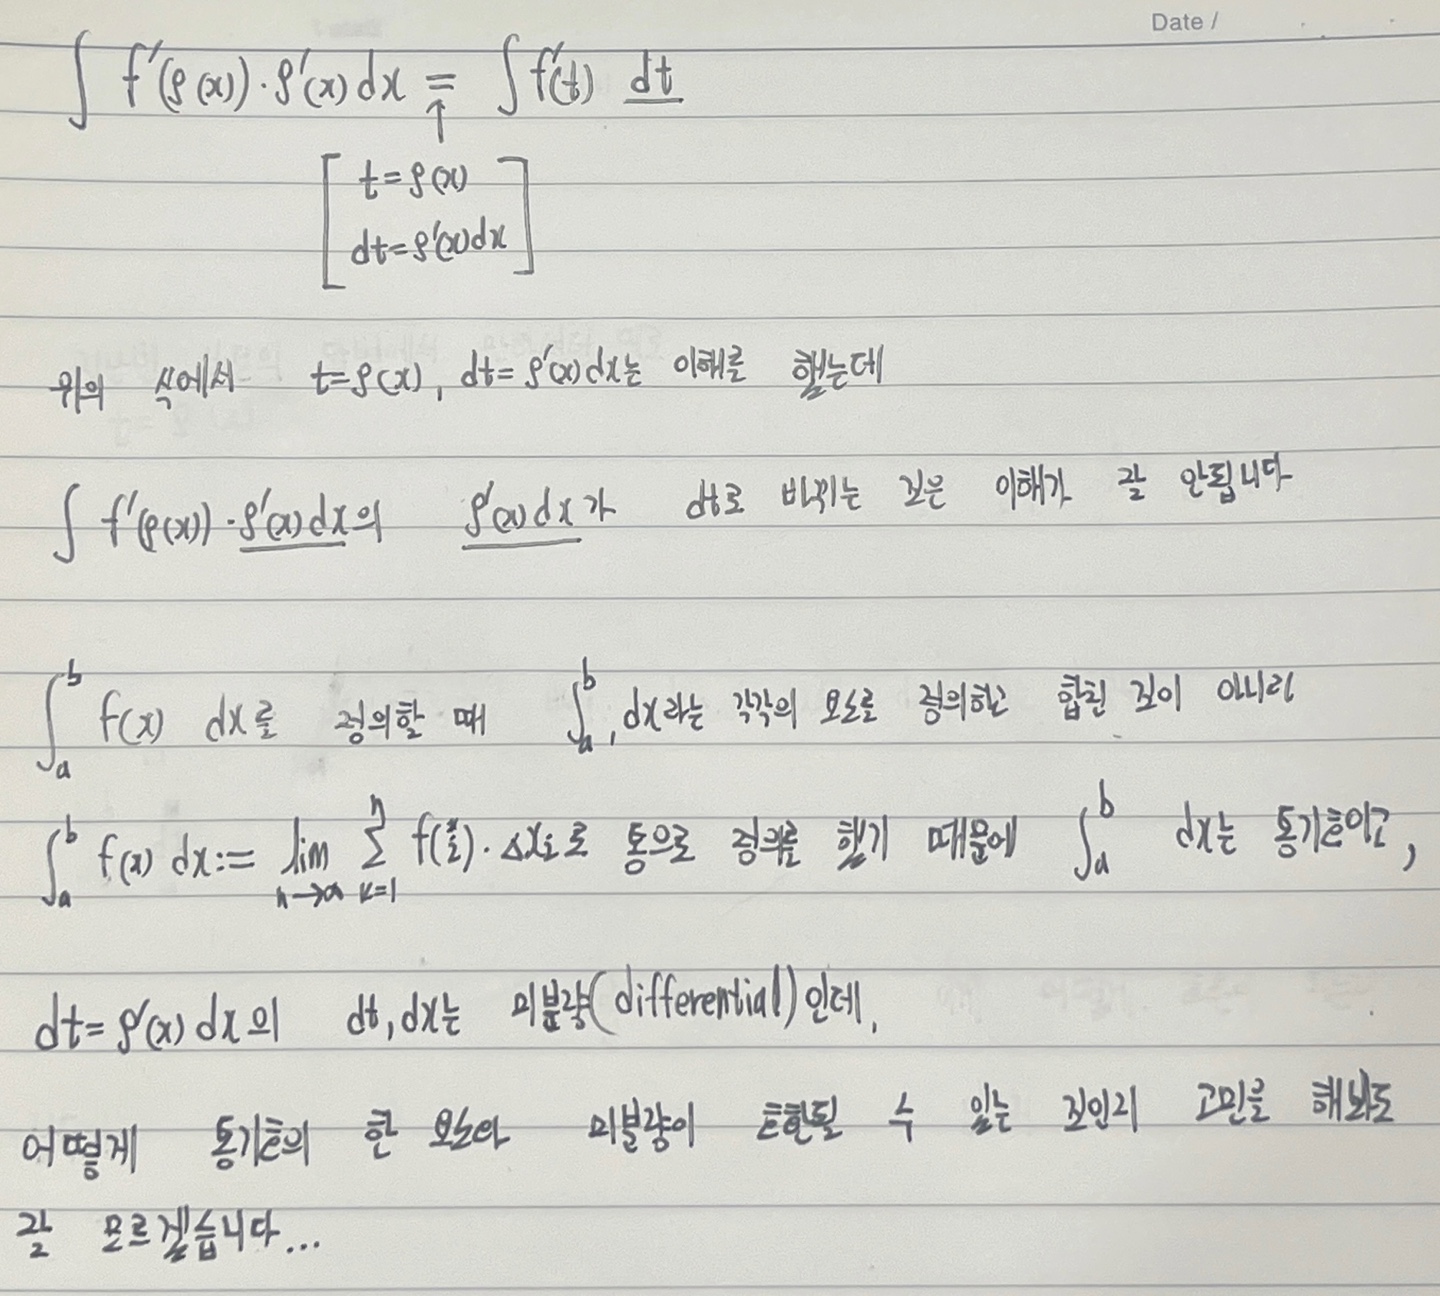 Date /
∫ f'(g(x))·g'(x)dx = ∫f'(t) dt
↑
t=g(x)
dt=g'(x)dx
위의 식에서 t=g(x), dt=g'(x)dx는 이해를 했는데
∫ f'(g(x))·g'(x)dx의 g'(x)dx가 dt로 바뀌는 것은 이해가 잘 안됩니다
∫_a^b f(x) dx를 정의할 때 ∫_a^b, dx라는 각각의 요소로 정의하고 합친 것이 아니라
∫_a^b f(x) dx := lim_{n→∞} Σ_{k=1}^n f(x_i^*)·Δx_i로 통으로 정의를 했기 때문에 ∫_a^b dx는 통기호이고,
dt=g'(x)dx의 dt, dx는 미분량(differential)인데,
어떻게 통기호의 한 요소와 미분량이 호환될 수 있는 것인지 고민을 해봐도
잘 모르겠습니다...